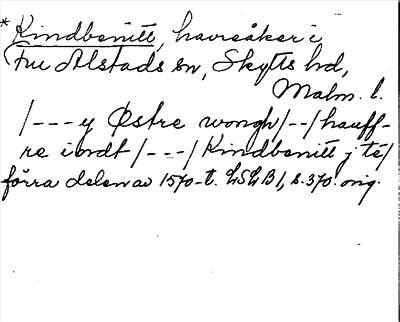 *Kindbenitt, havreåker i
Fru Alstads sn, Skytts hd,
Malm. l.
/---y Østre wongh/--/hauff-
re iordt/---/Kindbenitt j té/
förra delen av 1570-t. LSLB1, s. 370. orig.